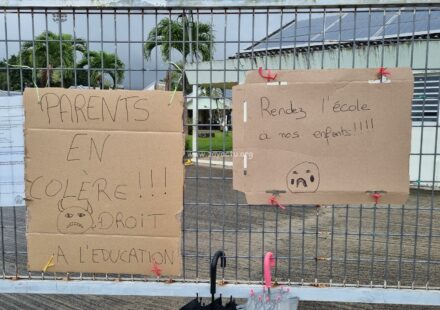 PARENTS
EN
COLÈRE !!!
DROIT
A L'EDUCATION
Rendez l'école
a nos enfants!!!!